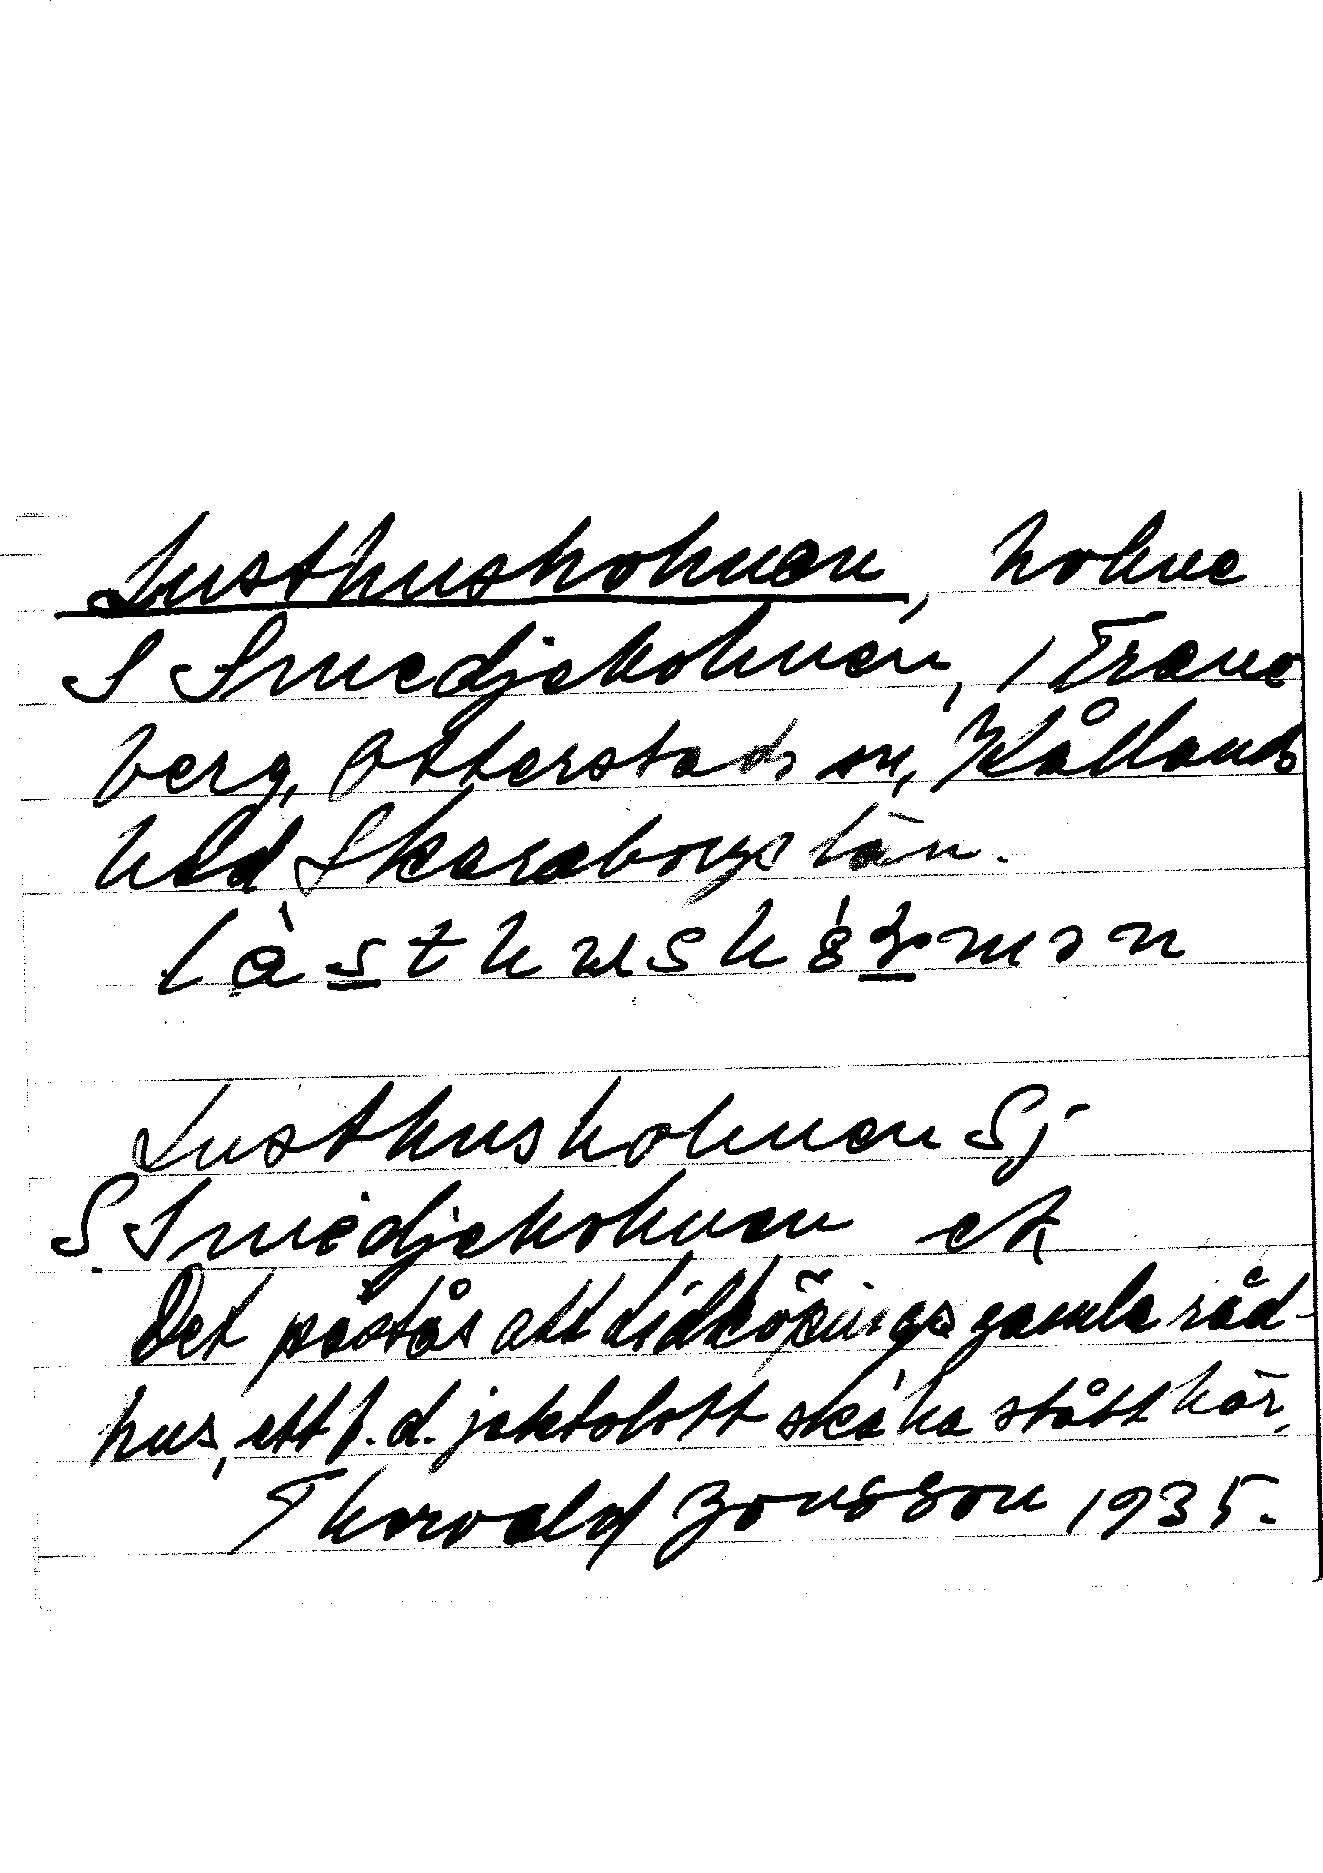 Lusthusholmen, holme
S Smedjeholmen, 1 Trane
berg, Otterstads sn, Kållands
hd Skaraborgs län.
Lusthusholmen Sj
S. Smedjeholmen ek
Det påstås att Lidköpings gamla råd-
hus, ett f.d. jaktslott ska ha stått här,
Thorvald Jonsson 1935.